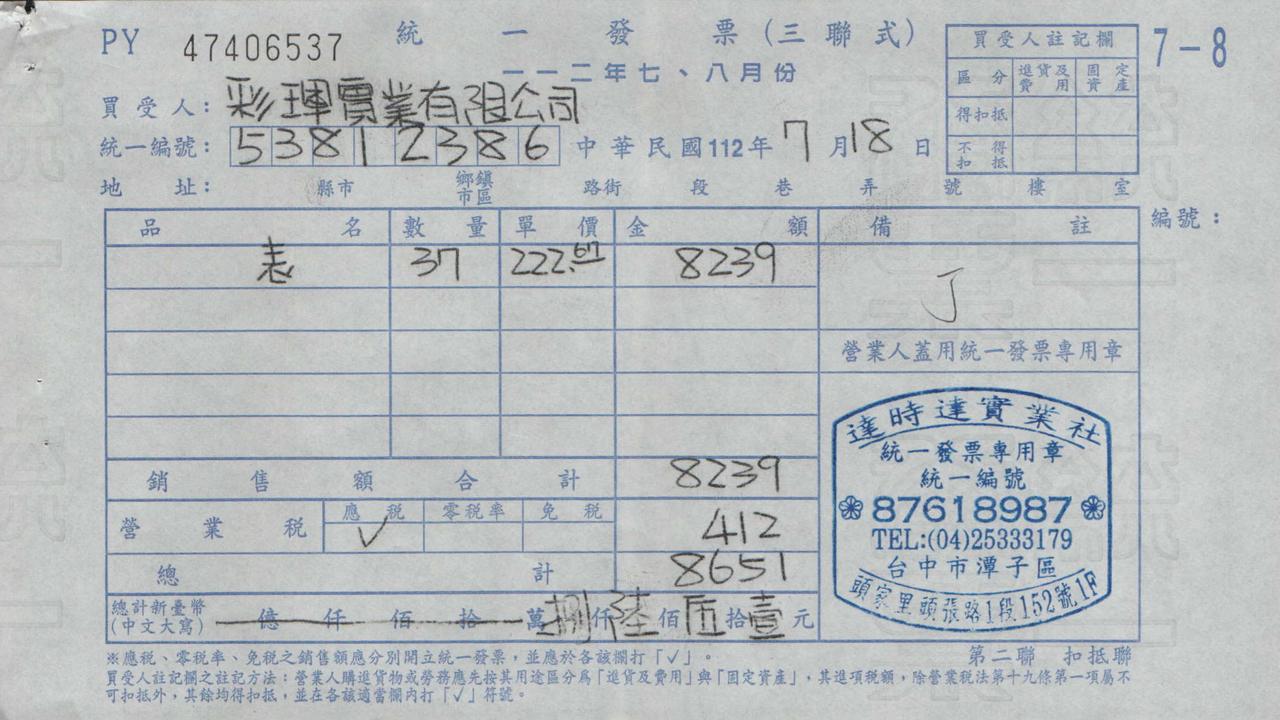 PY 47406537 統一發票(三聯式)
一一二年七、八月份
7-8
買受人註記欄
區分 進貨及費用 固定資產
得扣抵
不得扣抵
買受人:彩琿實業有限公司
統一編號:53812386 中華民國112年7月18日
地址: 縣市 鄉鎮市區 路街 段 巷 弄 號 樓 室
品名 數量 單價 金額 備註 編號:
表 37 222.67 8239 J
營業人蓋用統一發票專用章
銷售額合計 8239
營業稅 應稅 零稅率 免稅 412
✓
總計 8651
總計新臺幣(中文大寫) 億 仟 佰 拾 萬捌仟陸佰伍拾壹元
達時達實業社
統一發票專用章
統一編號
87618987
TEL:(04)25333179
台中市潭子區
頭家里頭張路1段152號1F
第二聯 扣抵聯
※應稅、零稅率、免稅之銷售額應分別開立統一發票,並應於各該欄打「✓」。
買受人註記欄之註記方法:營業人購進貨物或勞務應先按其用途區分為「進貨及費用」與「固定資產」,其進項稅額,除營業稅法第十九條第一項屬不
可扣抵外,其餘均得扣抵,並在各該適當欄內打「✓」符號。